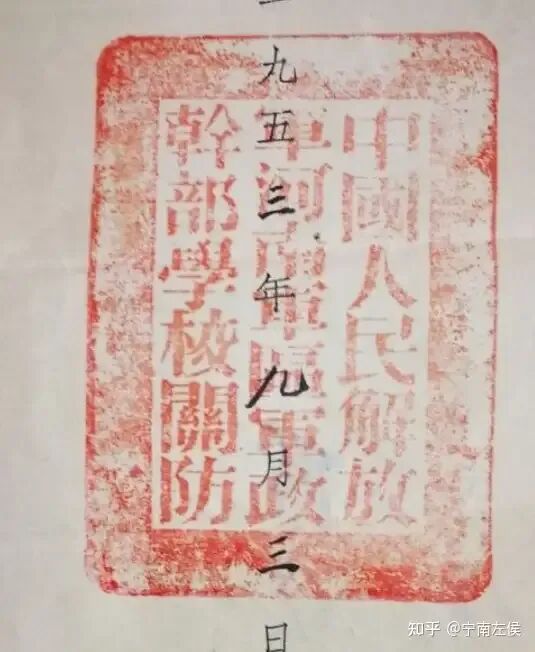 中國人民解放
軍河南軍區軍政
幹部學校關防
一九五三年九月三日
知乎 @宁南左侯